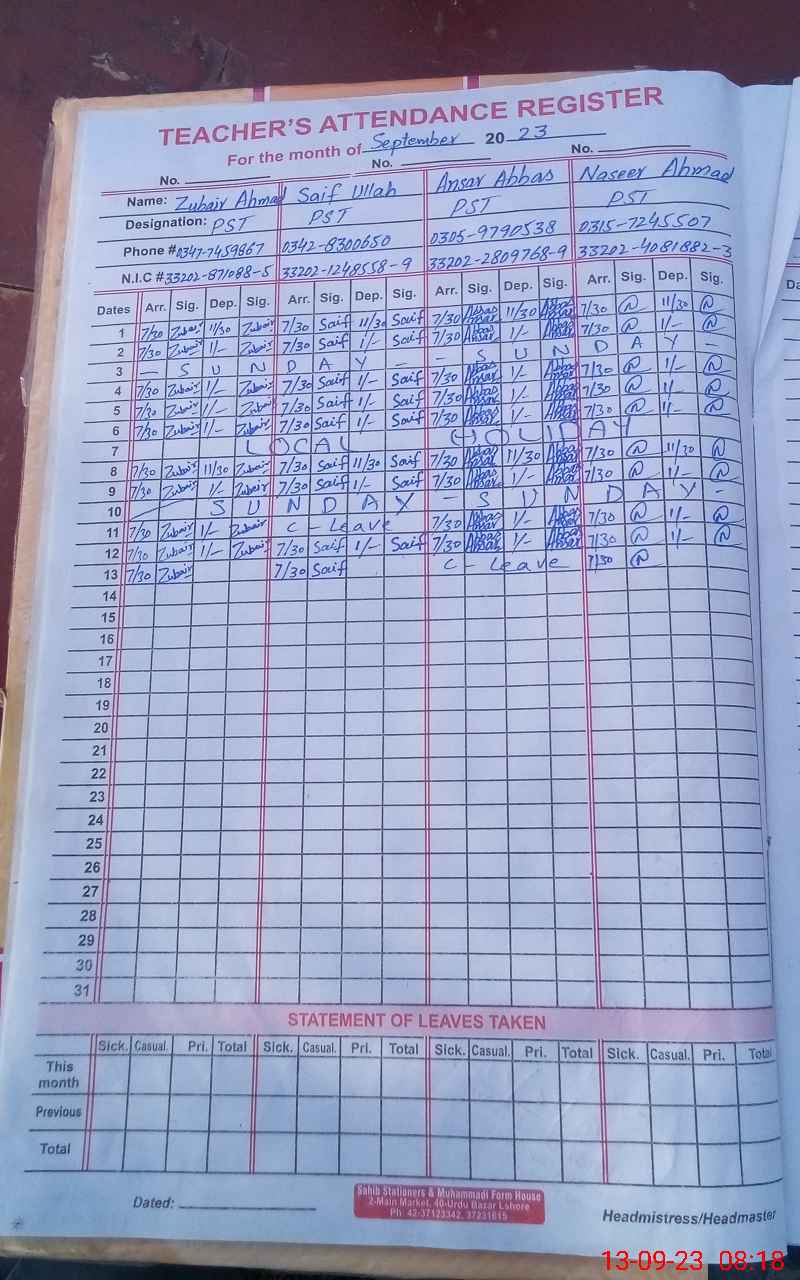 TEACHER'S ATTENDANCE REGISTER
For the month of September 20 23
No. No. No.
Name: Zubair Ahmad Saif Ullah Ansar Abbas Naseer Ahmad
Designation: PST PST PST PST
Phone # 0347-7459867 0342-8300650 0305-9790538 0315-7245507
N.I.C # 33202-871088-5 33202-1248558-9 33202-2809768-9 33202-4081882-3
Dates Arr. Sig. Dep. Sig. Arr. Sig. Dep. Sig. Arr. Sig. Dep. Sig. Arr. Sig. Dep. Sig.
1 7/30 Zubair 11/30 Zubair 7/30 Saif 11/30 Saif 7/30 Abbas Ansar 11/30 Abbas Ansar 7/30 11/30
2 7/30 Zubair 1/- Zubair 7/30 Saif 1/- Saif 7/30 Abbas Ansar 1/- Abbas Ansar 7/30 1/-
3 - S U N D A Y - - S U N D A Y -
4 7/30 Zubair 1/- Zubair 7/30 Saif 1/- Saif 7/30 Abbas Ansar 1/- Abbas Ansar 7/30 1/-
5 7/30 Zubair 1/- Zubair 7/30 Saif 1/- Saif 7/30 Abbas Ansar 1/- Abbas Ansar 7/30 1/-
6 7/30 Zubair 1/- Zubair 7/30 Saif 1/- Saif 7/30 Abbas Ansar 1/- Abbas Ansar 7/30 1/-
7 LOCAL HOLIDAY
8 7/30 Zubair 11/30 Zubair 7/30 Saif 11/30 Saif 7/30 Abbas Ansar 11/30 Abbas Ansar 7/30 11/30
9 7/30 Zubair 1/- Zubair 7/30 Saif 1/- Saif 7/30 Abbas Ansar 1/- Abbas Ansar 7/30 1/-
10 - S U N D A Y - S U N D A Y -
11 7/30 Zubair 1/- Zubair C - Leave 7/30 Abbas Ansar 1/- Abbas Ansar 7/30 1/-
12 7/30 Zubair 1/- Zubair 7/30 Saif 1/- Saif 7/30 Abbas Ansar 1/- Abbas Ansar 7/30 1/-
13 7/30 Zubair 7/30 Saif C - Leave 7/30
14
15
16
17
18
19
20
21
22
23
24
25
26
27
28
29
30
31
STATEMENT OF LEAVES TAKEN
Sick. Casual. Pri. Total Sick. Casual. Pri. Total Sick. Casual. Pri. Total Sick. Casual. Pri. Total
This month
Previous
Total
Dated:
Sahib Stationers & Muhammadi Form House
2-Main Market, 40-Urdu Bazar Lahore
Ph: 42-37123342, 37231615
Headmistress/Headmaster
13-09-23 08:18